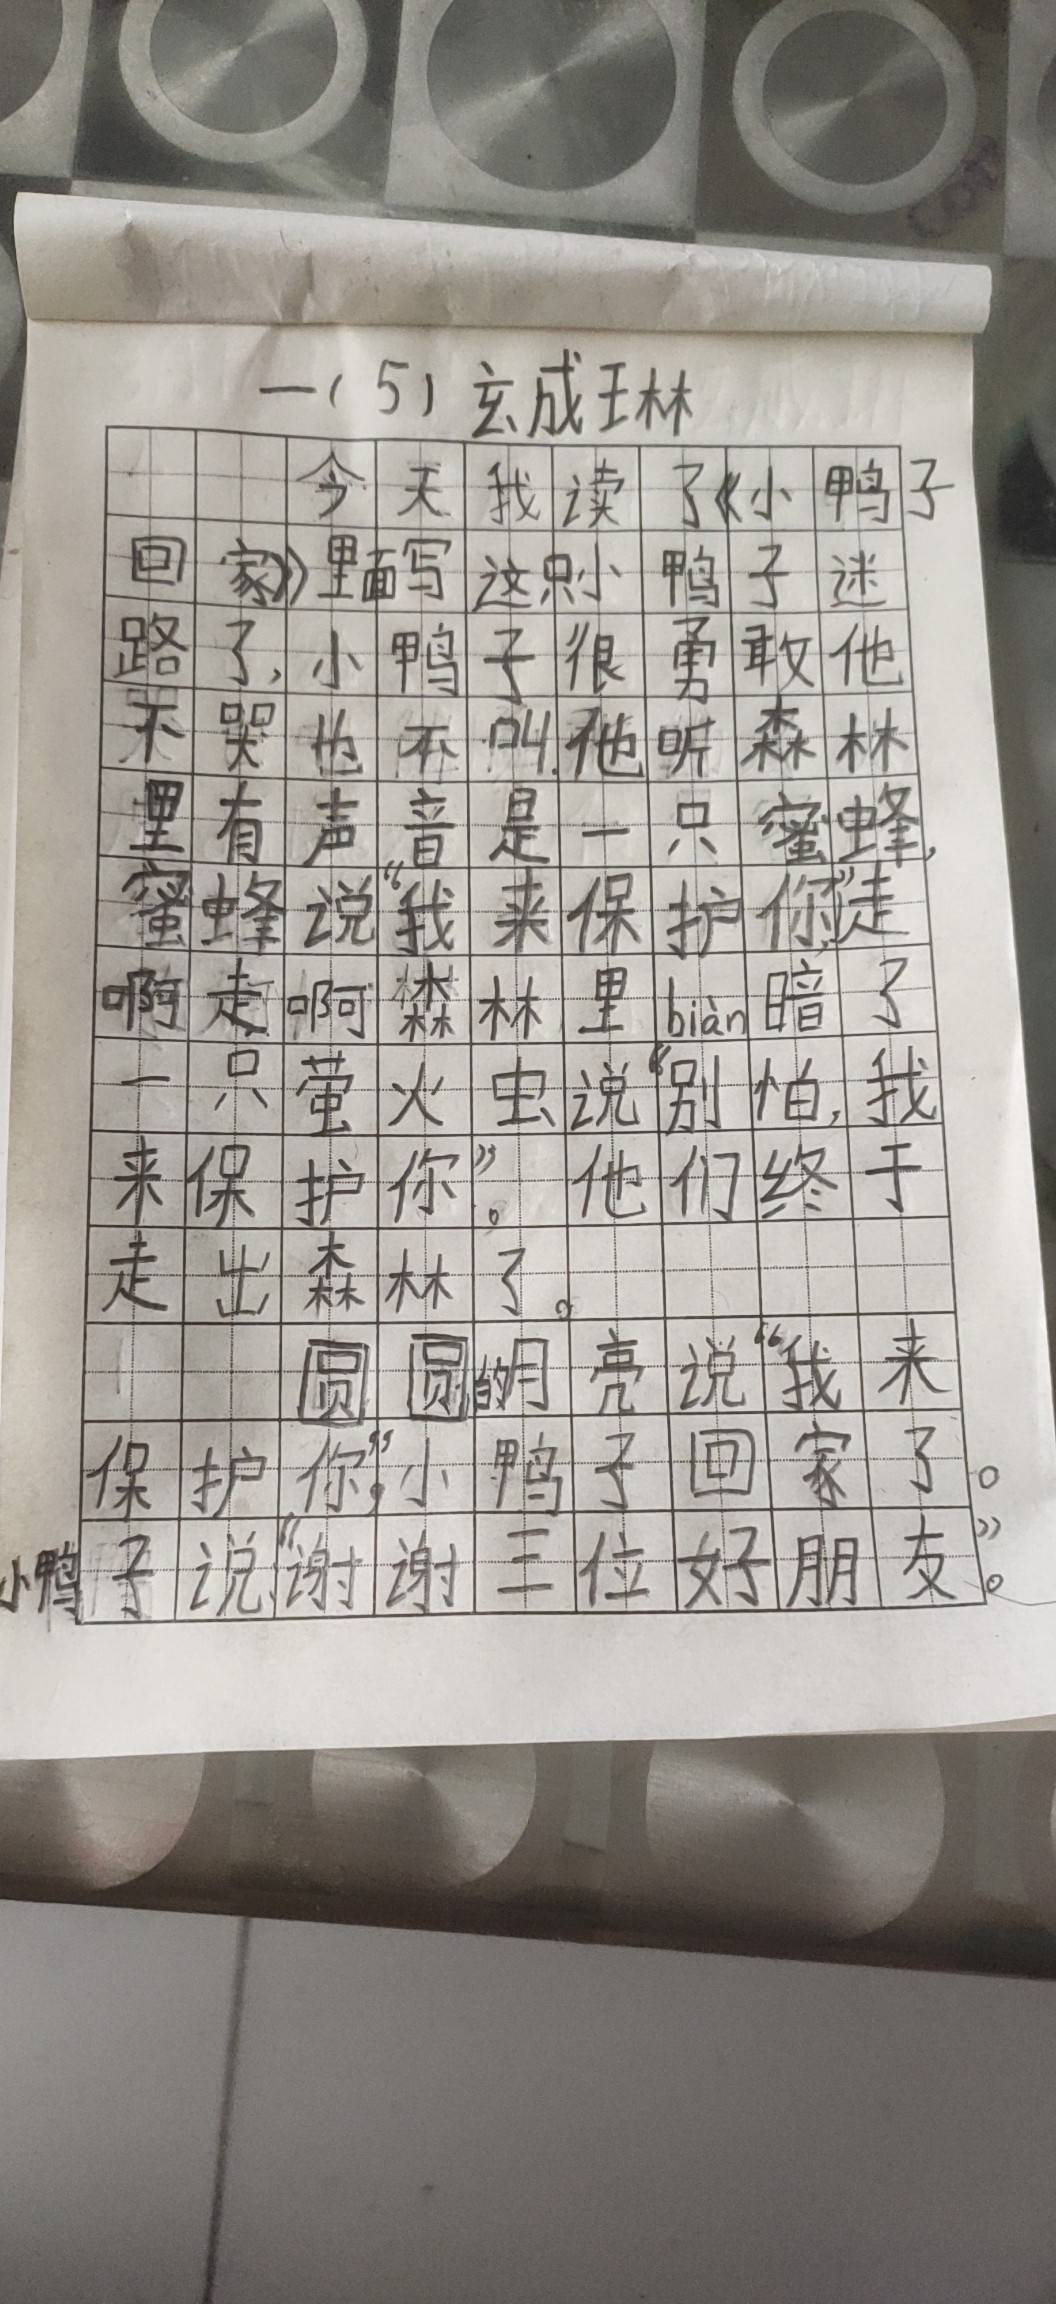 一（5）玄成玨林
今天我读了《小鸭子
回家》里面写这只小鸭子迷
路了,小鸭子很勇敢他
不哭也不叫.他听森林
里有声音是一只蜜蜂,
蜜蜂说“我来保护你.”走
啊走啊森林里biàn暗了
一只萤火虫说“别怕,我
来保护你”。他们终于
走出森林了。
圆圆的月亮说“我来
保护你”,小鸭子回家了。
小鸭子说“谢谢三位好朋友”。